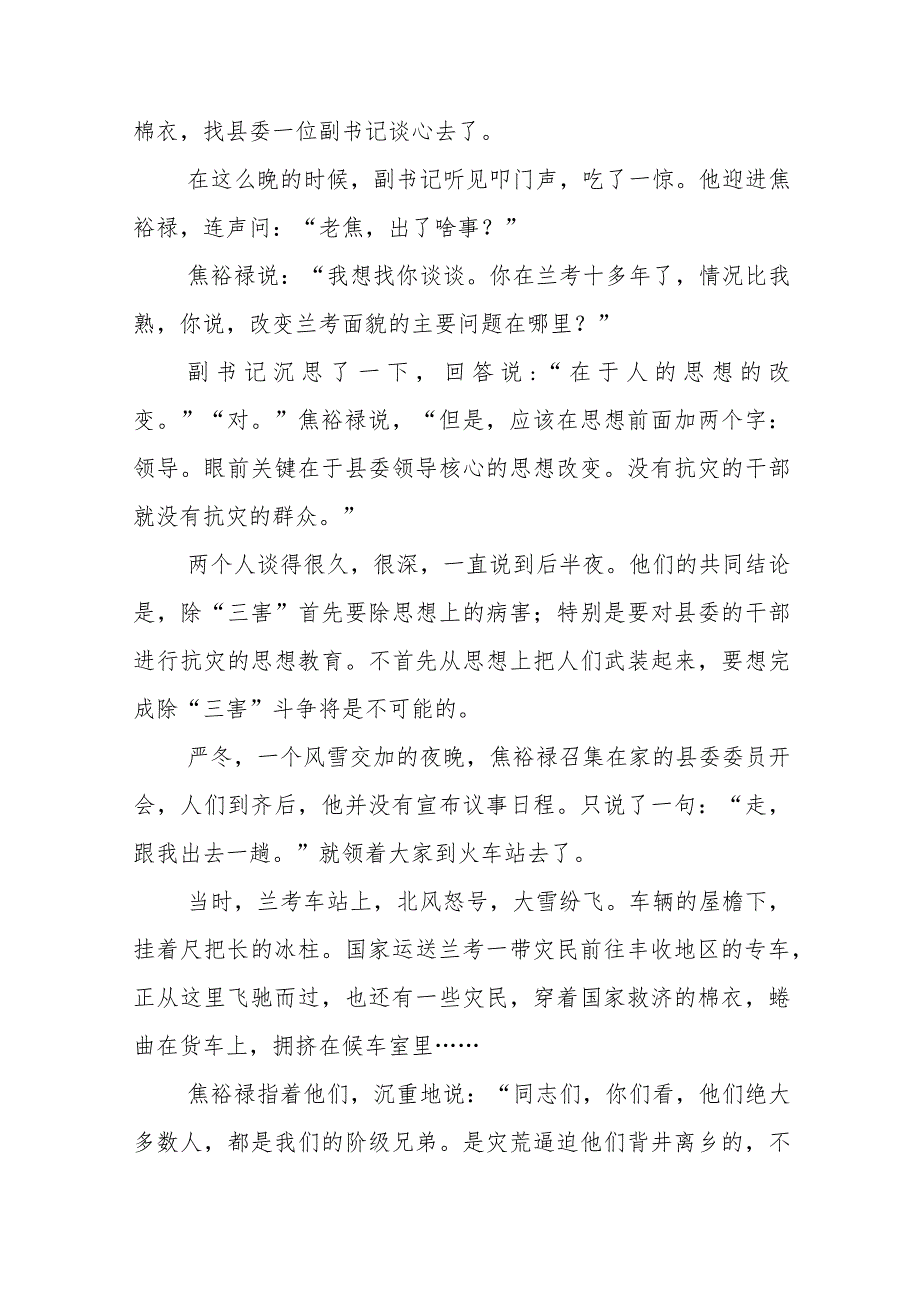 棉衣，找县委一位副书记谈心去了。
在这么晚的时候，副书记听见叩门声，吃了一惊。他迎进焦
裕禄，连声问：“老焦，出了啥事？”
焦裕禄说：“我想找你谈谈。你在兰考十多年了，情况比我
熟，你说，改变兰考面貌的主要问题在哪里？”
副书记沉思了一下，回答说:“在于人的思想的改
变。”“对。”焦裕禄说，“但是，应该在思想前面加两个字：
领导。眼前关键在于县委领导核心的思想改变。没有抗灾的干部
就没有抗灾的群众。”
两个人谈得很久，很深，一直说到后半夜。他们的共同结论
是，除“三害”首先要除思想上的病害；特别是要对县委的干部
进行抗灾的思想教育。不首先从思想上把人们武装起来，要想完
成除“三害”斗争将是不可能的。
严冬，一个风雪交加的夜晚，焦裕禄召集在家的县委委员开
会，人们到齐后，他并没有宣布议事日程。只说了一句：“走，
跟我出去一趟。”就领着大家到火车站去了。
当时，兰考车站上，北风怒号，大雪纷飞。车辆的屋檐下，
挂着尺把长的冰柱。国家运送兰考一带灾民前往丰收地区的专车，
正从这里飞驰而过，也还有一些灾民，穿着国家救济的棉衣，蜷
曲在货车上，拥挤在候车室里……
焦裕禄指着他们，沉重地说：“同志们，你们看，他们绝大
多数人，都是我们的阶级兄弟。是灾荒逼迫他们背井离乡的，不